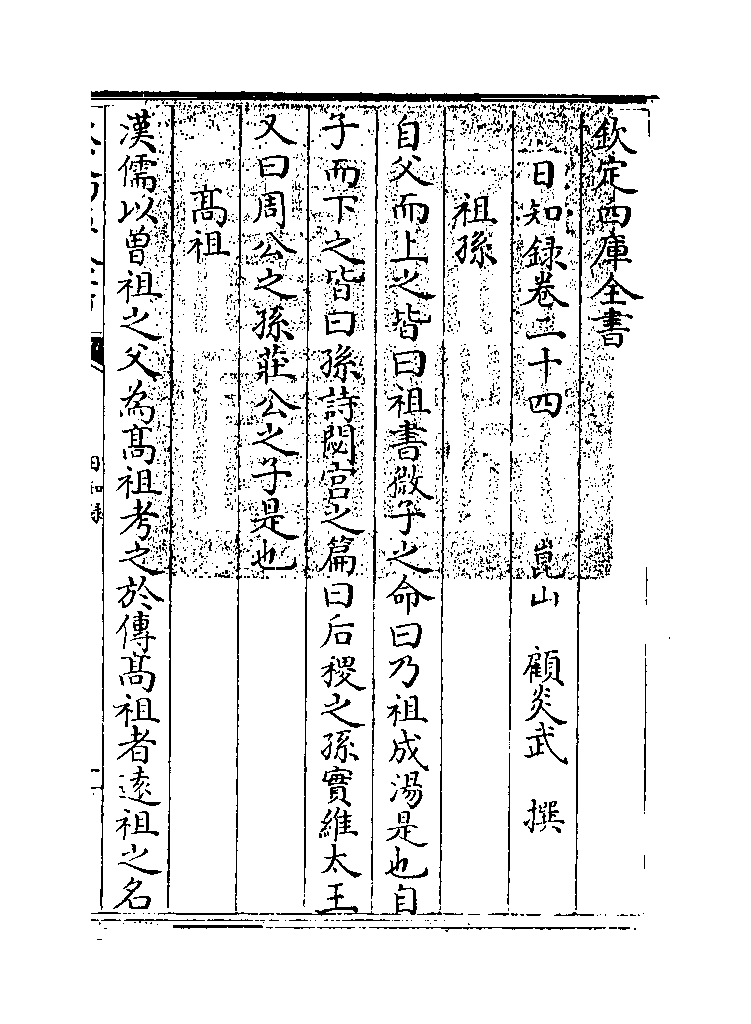 欽定四庫全書
日知録卷二十四
崑山 顧炎武 撰
祖孫
自父而上之皆曰祖書微子之命曰乃祖成湯是也自
子而下之皆曰孫詩閟宫之篇曰后稷之孫實維太王
又曰周公之孫莊公之子是也
髙祖
漢儒以曽祖之父為髙祖考之於傳髙祖者逺祖之名
日知録